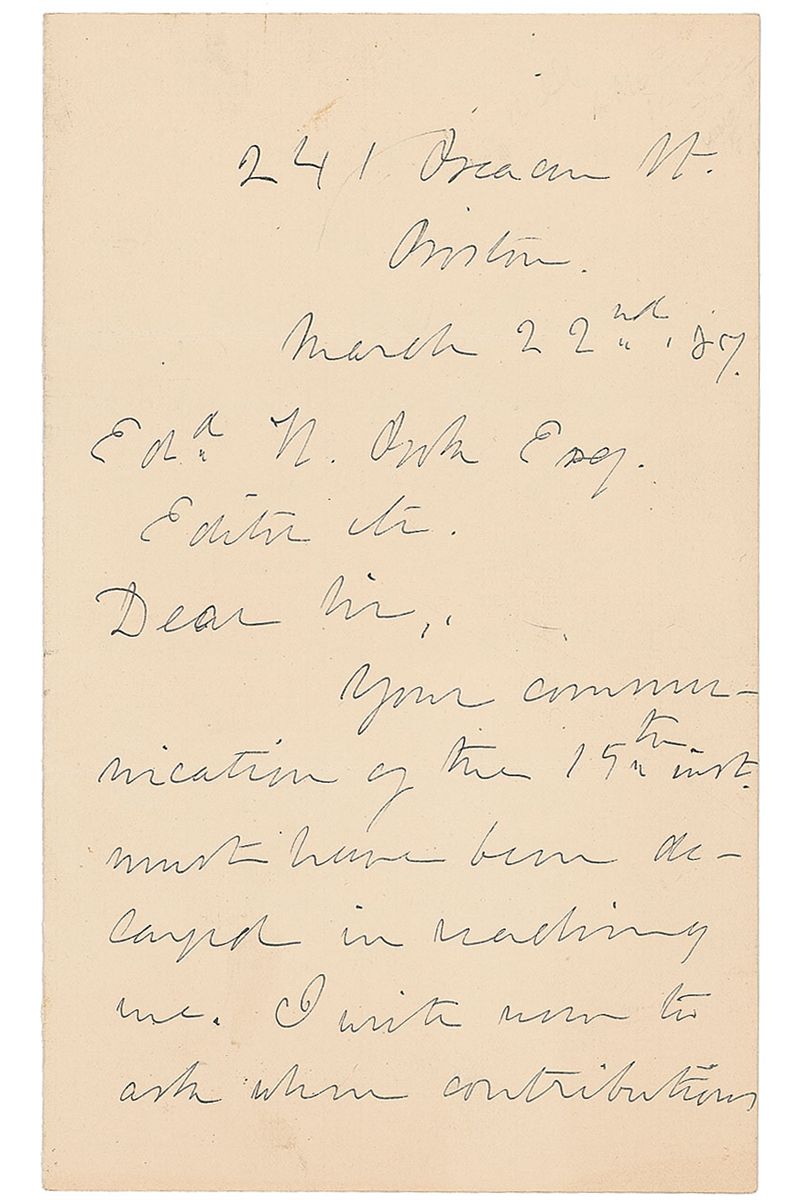 241 Beacon St.
Boston.
March 22nd. '87.
Edd W. Bok Esq.
Editor etc.
Dear Sir,
Your commu-
nication of the 15th inst.
must have been de-
layed in reaching
me. I write now to
ask when contributions